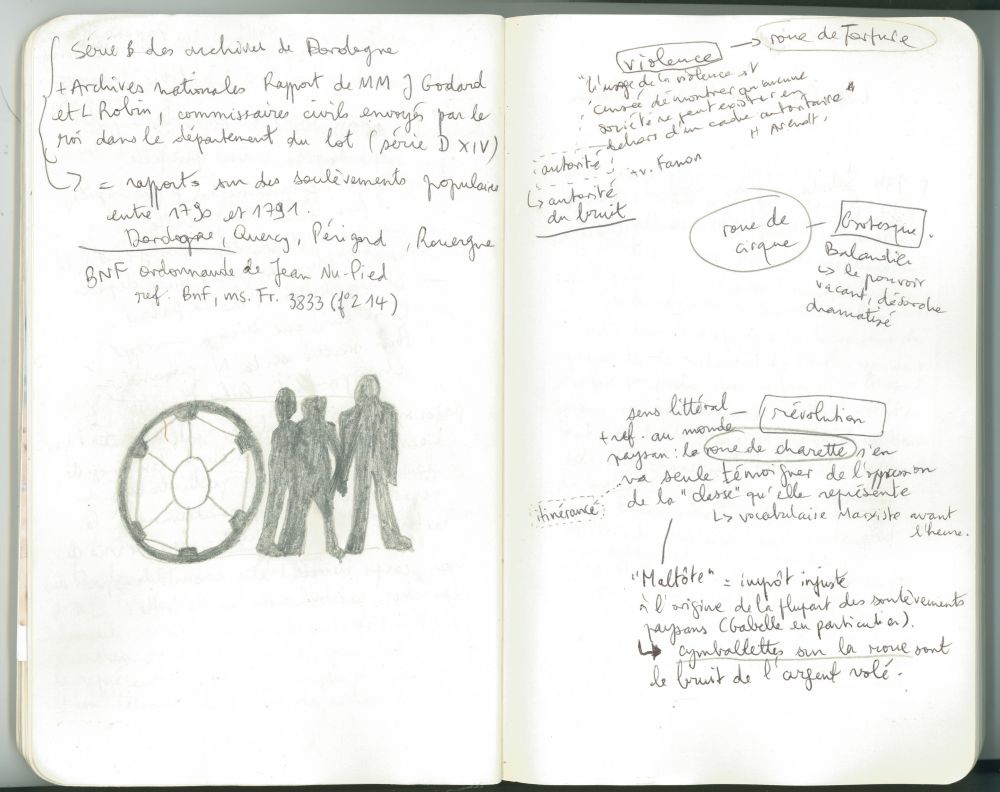 Série B des archives de Dordogne
+ Archives nationales Rapport de MM J Godard
et L Robin, commissaires civils envoyés par le
roi dans le département du lot (série D XIV)
↳ = rapports sur des soulèvements populaires
entre 1790 et 1791.
Dordogne, Quercy, Périgord, Rouergue
BNF ordonnance de Jean Nu-Pied
ref. Bnf, ms. Fr. 3833 (f°214)
violence → roue de Torture
"L'usage de la violence est
censée démontrer qu'aucune
société ne peut exister en
dehors d'un cadre autoritaire"
H Arendt,
autorité
+ v. Fanon
↳ autorité
du bruit
roue de
cirque
Grotesque.
Balandier
↳ le pouvoir
vacant, désordre
dramatisé
sens littéral — révolution
+ ref. au monde
paysan : la roue de charette s'en
va seule témoigner de l'oppression
de la "classe" qu'elle représente
itinérance
↳ vocabulaire Marxiste avant
l'heure.
"Maltôte" = impôt injuste
à l'origine de la plupart des soulèvements
paysans (Gabelle en particulier).
↳ cymballettes sur la roue sont
le bruit de l'argent volé.